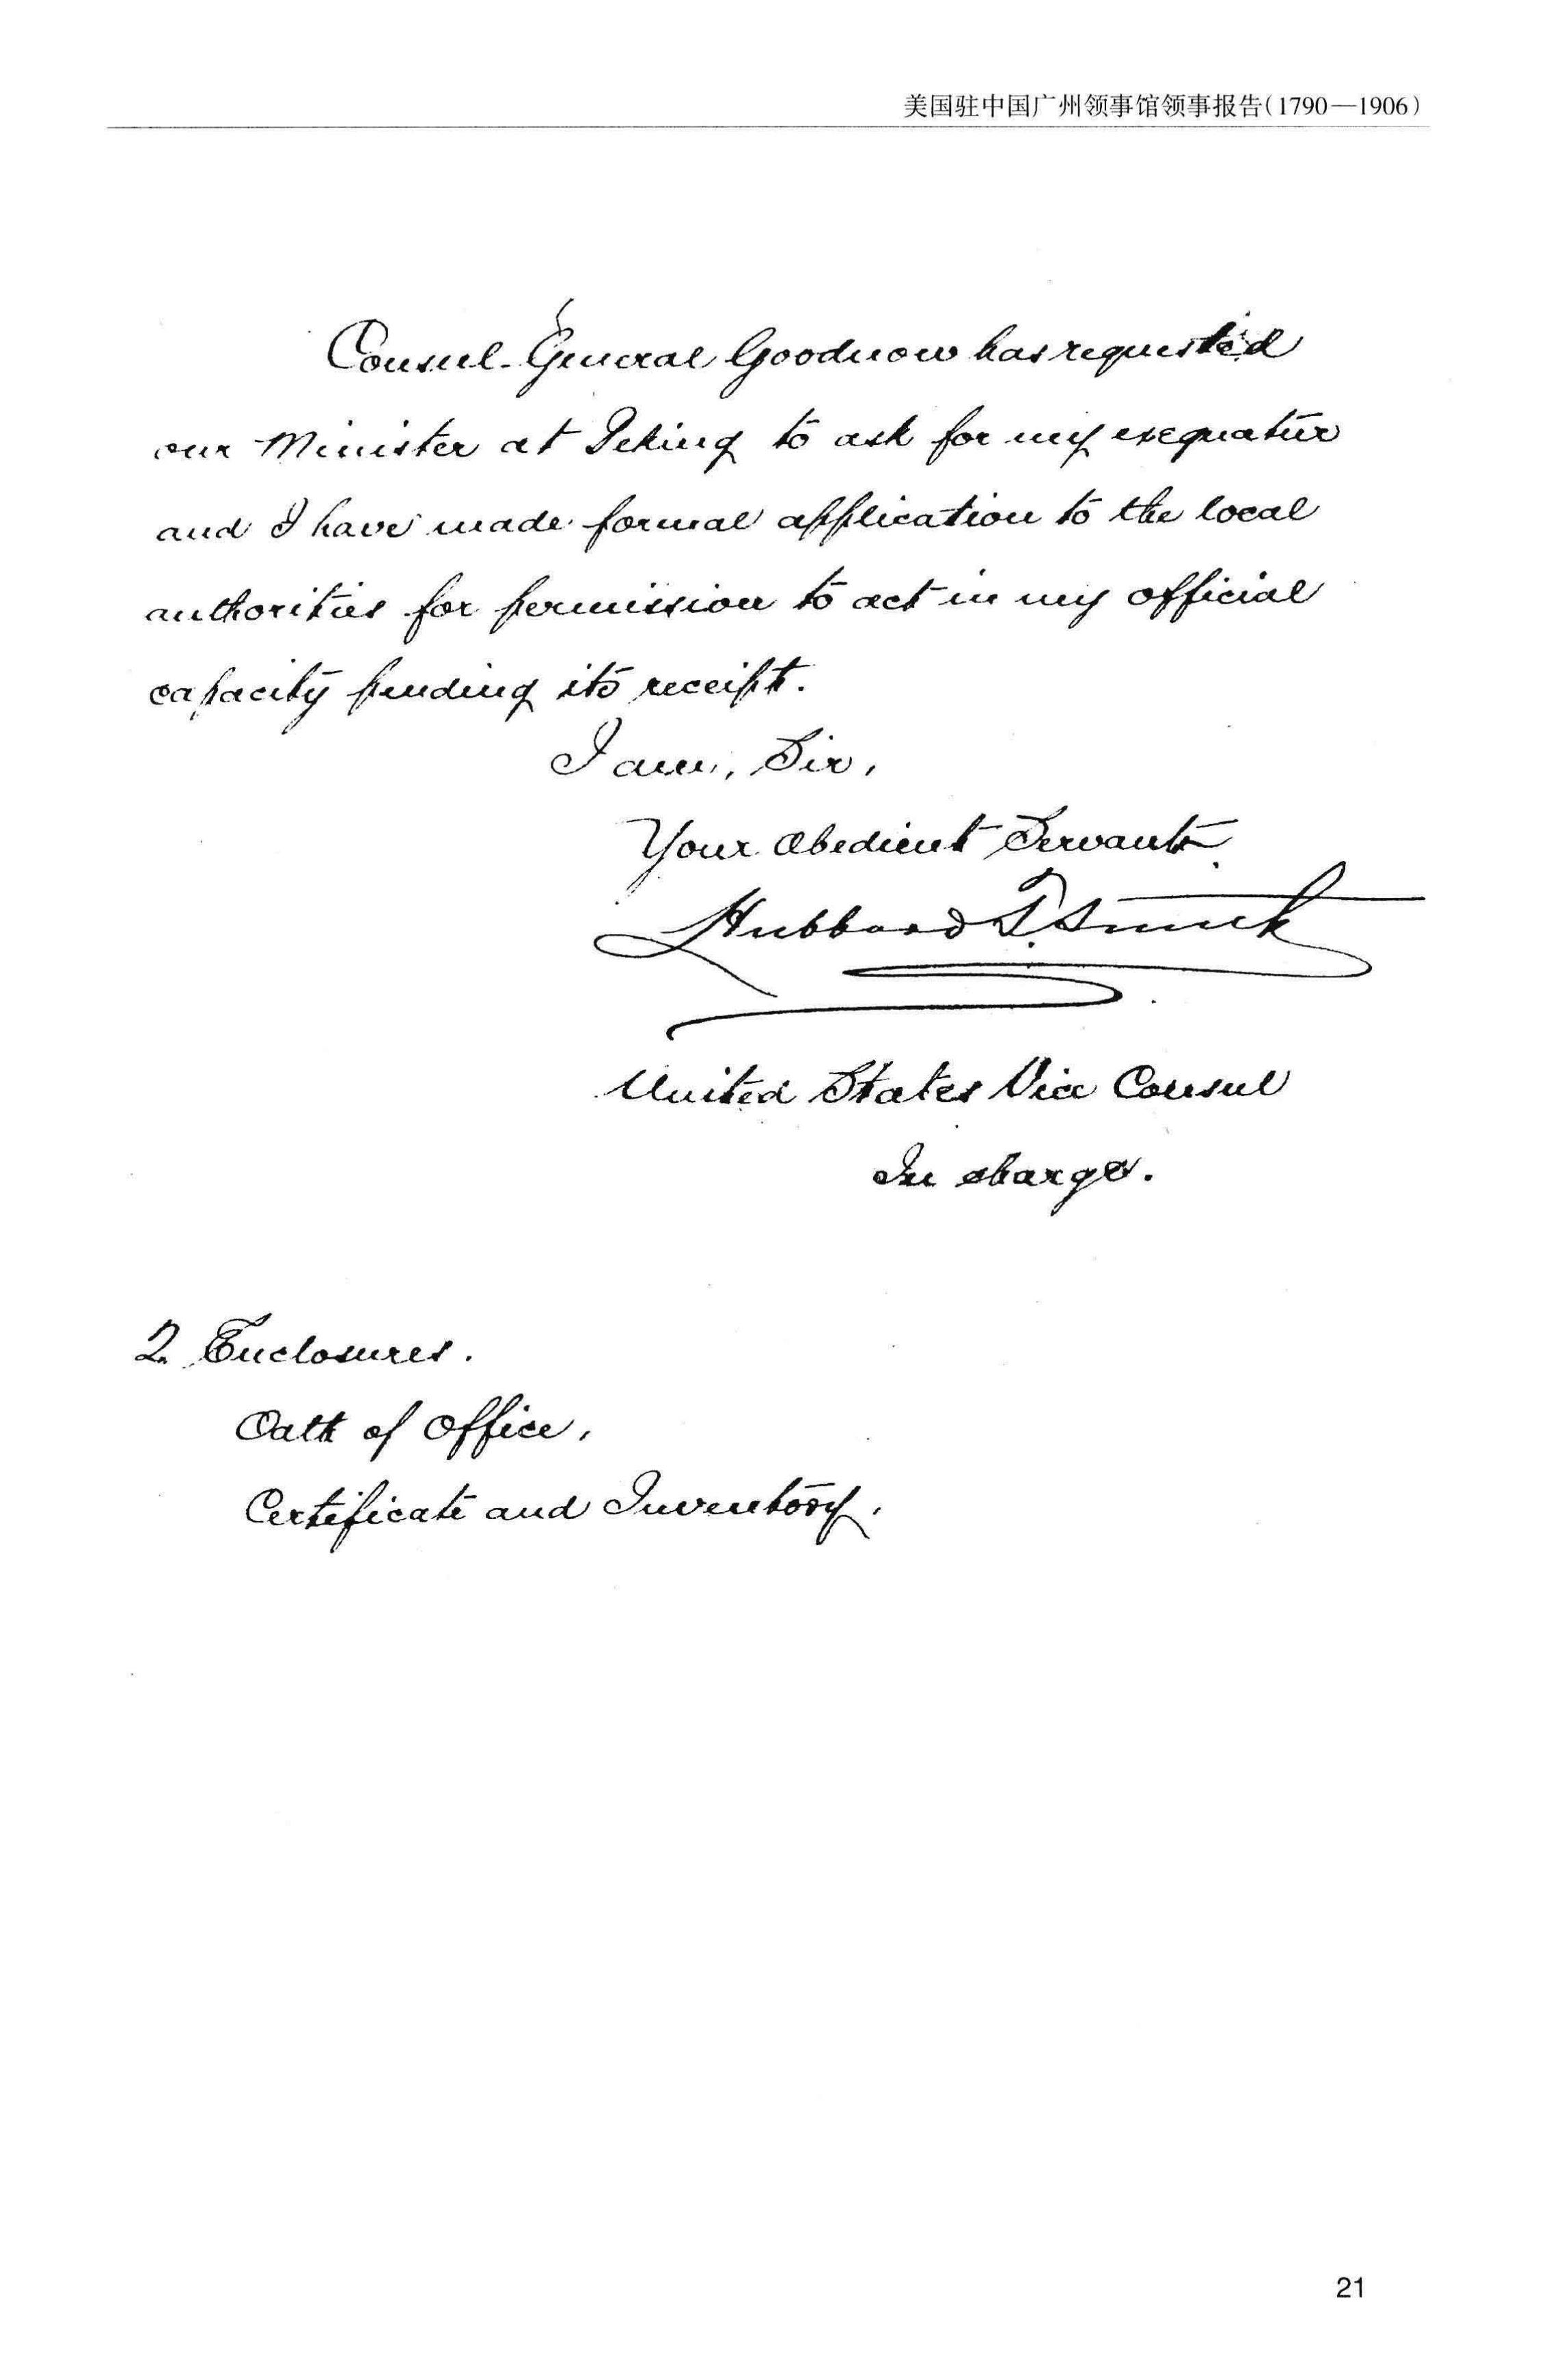 美国驻中国广州领事馆领事报告(1790—1906)
Consul-General Goodnow has requested
our Minister at Peking to ask for my exequatur
and I have made formal application to the local
authorities for permission to act in my official
capacity pending its receipt.
I am, Sir,
Your Obedient Servant
Hubbard T. Smith
United States Vice Consul
In charge.
2 Enclosures.
Oath of Office,
Certificate and Inventory.
21